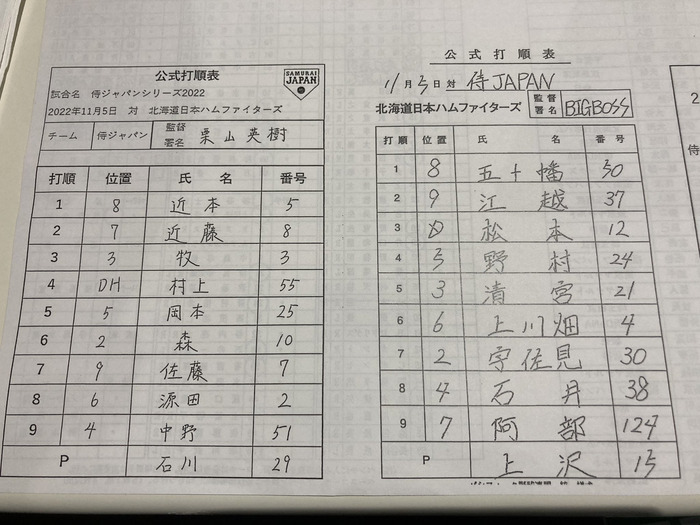 公式打順表
SAMURAI JAPAN
試合名 侍ジャパンシリーズ2022
2022年11月5日 対 北海道日本ハムファイターズ
チーム 侍ジャパン 監督署名 栗山英樹
打順 位置 氏名 番号
1 8 近本 5
2 7 近藤 8
3 3 牧 3
4 DH 村上 55
5 5 岡本 25
6 2 森 10
7 9 佐藤 7
8 6 源田 2
9 4 中野 51
P 石川 29
公式打順表
11月5日 対 侍JAPAN
北海道日本ハムファイターズ 監督署名 BIGBOSS
打順 位置 氏名 番号
1 8 五十幡 50
2 9 江越 37
3 D 松本 12
4 5 野村 24
5 3 清宮 21
6 6 上川畑 4
7 2 宇佐見 30
8 4 石井 38
9 7 阿部 124
P 上沢 15
2
侍